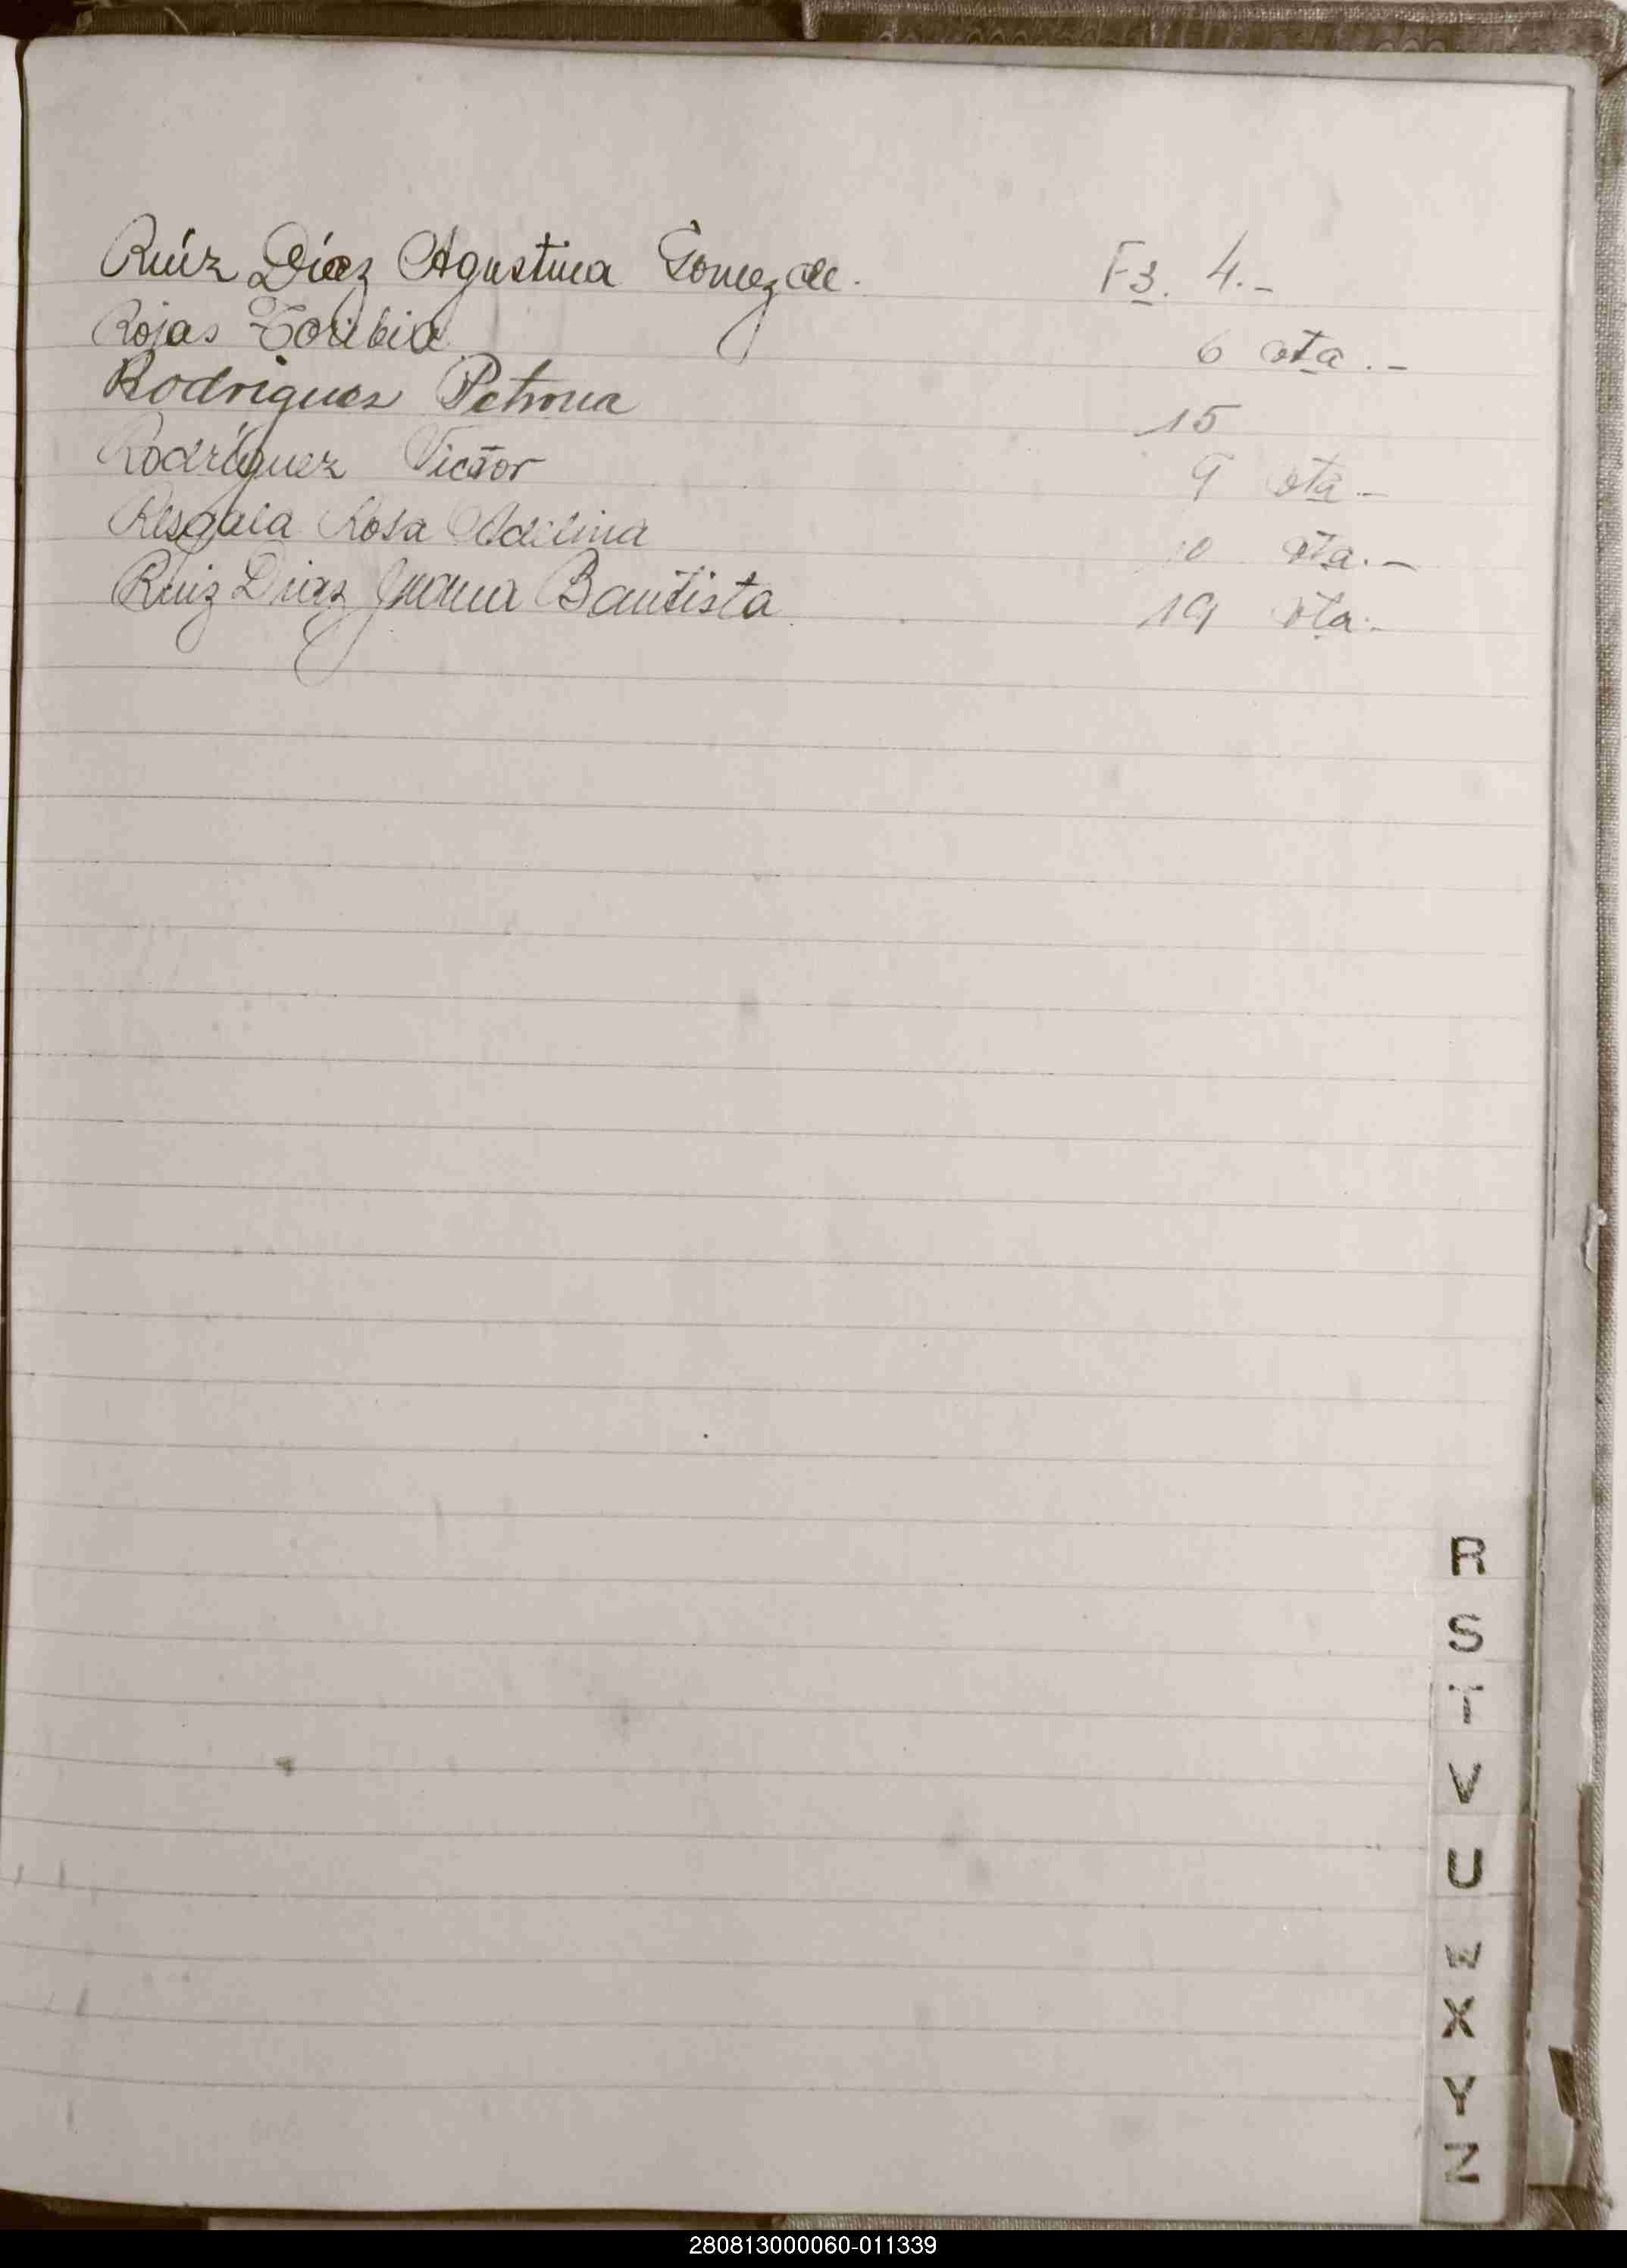 Ruíz Díaz Agustina Gomez de. Fs. 4.-
Rojas Toribia 6 vta.-
Rodriguez Petrona 15
Rodríguez Victor 9 vta.-
Rosa Adelina 10 vta.-
Ruiz Diaz Juana Bautista 19 vta.-
R
S
T
V
U
W
X
Y
Z
280813000060-011339